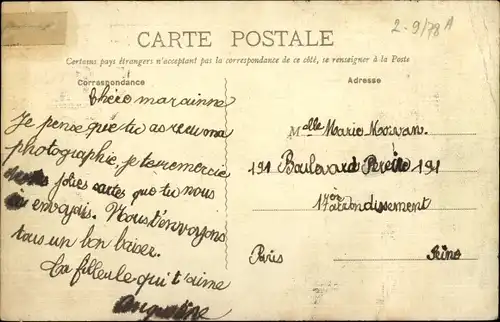 2-9/78A
CARTE POSTALE
Certains pays étrangers n'acceptant pas la correspondance de ce côté, se renseigner à la Poste
Correspondance
Chère marainne
Je pense que tu as reçu ma
photographie, je te remercie
jolies cartes que tu nous
envoyais. Nous t'envoyons
tous un bon baiser.
Ta filleule qui t'aime
Augustine
Adresse
Mdlle Marie Morvan.
191 Boulevard Pereire 191
17ème arrondissement
Paris Seine